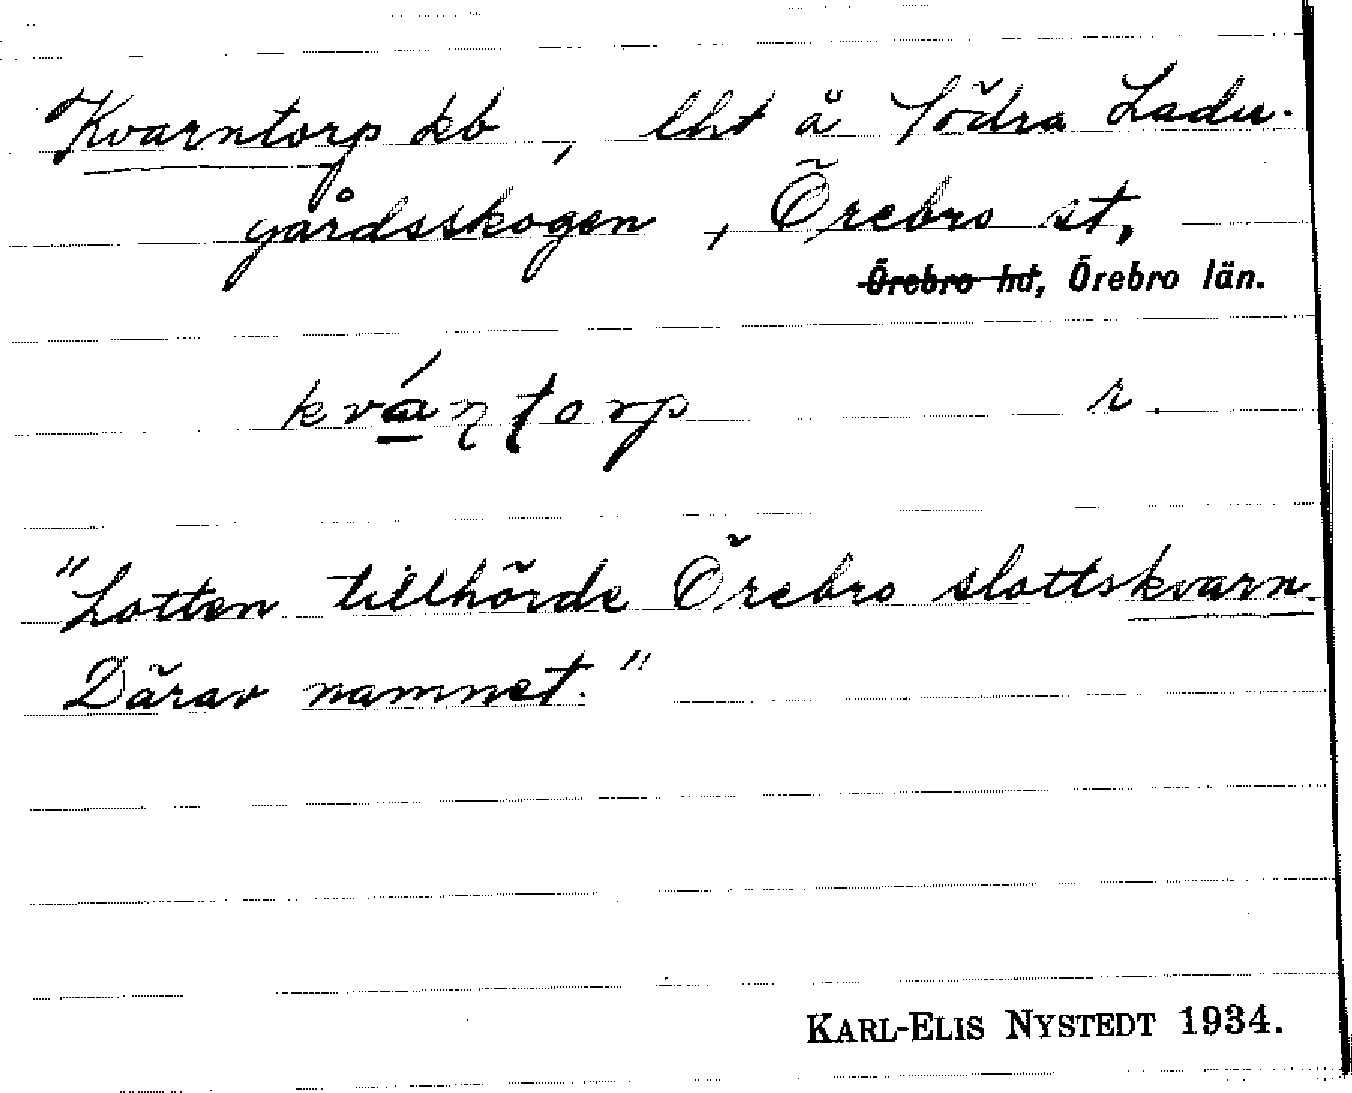 Kvarntorp kb, lht å Södra Ladu-
gårdsskogen, Örebro st,
Örebro hd, Örebro län.
kváṇṭorp r.
"Lotten tillhörde Örebro slottskvarn.
Därav namnet."
KARL-ELIS NYSTEDT 1934.